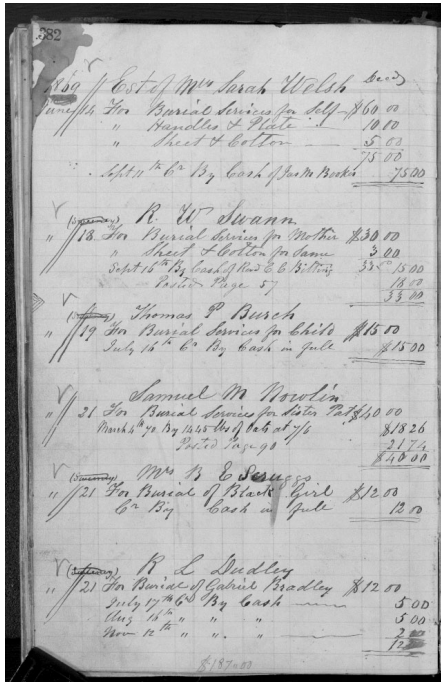 382
1869 Est of Mrs Sarah Welsh Decd
June 14 For Burial Services for Self $60 00
" Handles & Plate " 10 00
" Sheet & Cotton 5 00
75 00
Sept 11th Cr By Cash of Jas M 75 00
R. W Swann
" 18 For Burial Services for Mother $30 00
" Sheet & Cotton for Same 3 00
Sept 16th By Cash of E C 33 00 15 00
Posted Page 57 18 00
33 00
Thomas P Burch
" 19 For Burial Services for Child $15 00
July 14th Cr By Cash in full $15 00
Samuel M Nowlin
" 21 For Burial Services for Sister Pat $40 00
March 4th 70 By 1445 lbs of Oats at 7/6 $18 26
Posted Page 90 21 74
$40 00
Mrs B E Scruggs
" 21 For Burial of Black Girl $12 00
Cr By Cash in full 12 00
R L Dudley
" 21 For Burial of Gabriel Bradley $12 00
July 17th Cr By Cash 5 00
Aug 16th " " " 5 00
Nov 12th " " " 2 00
12
$187.00